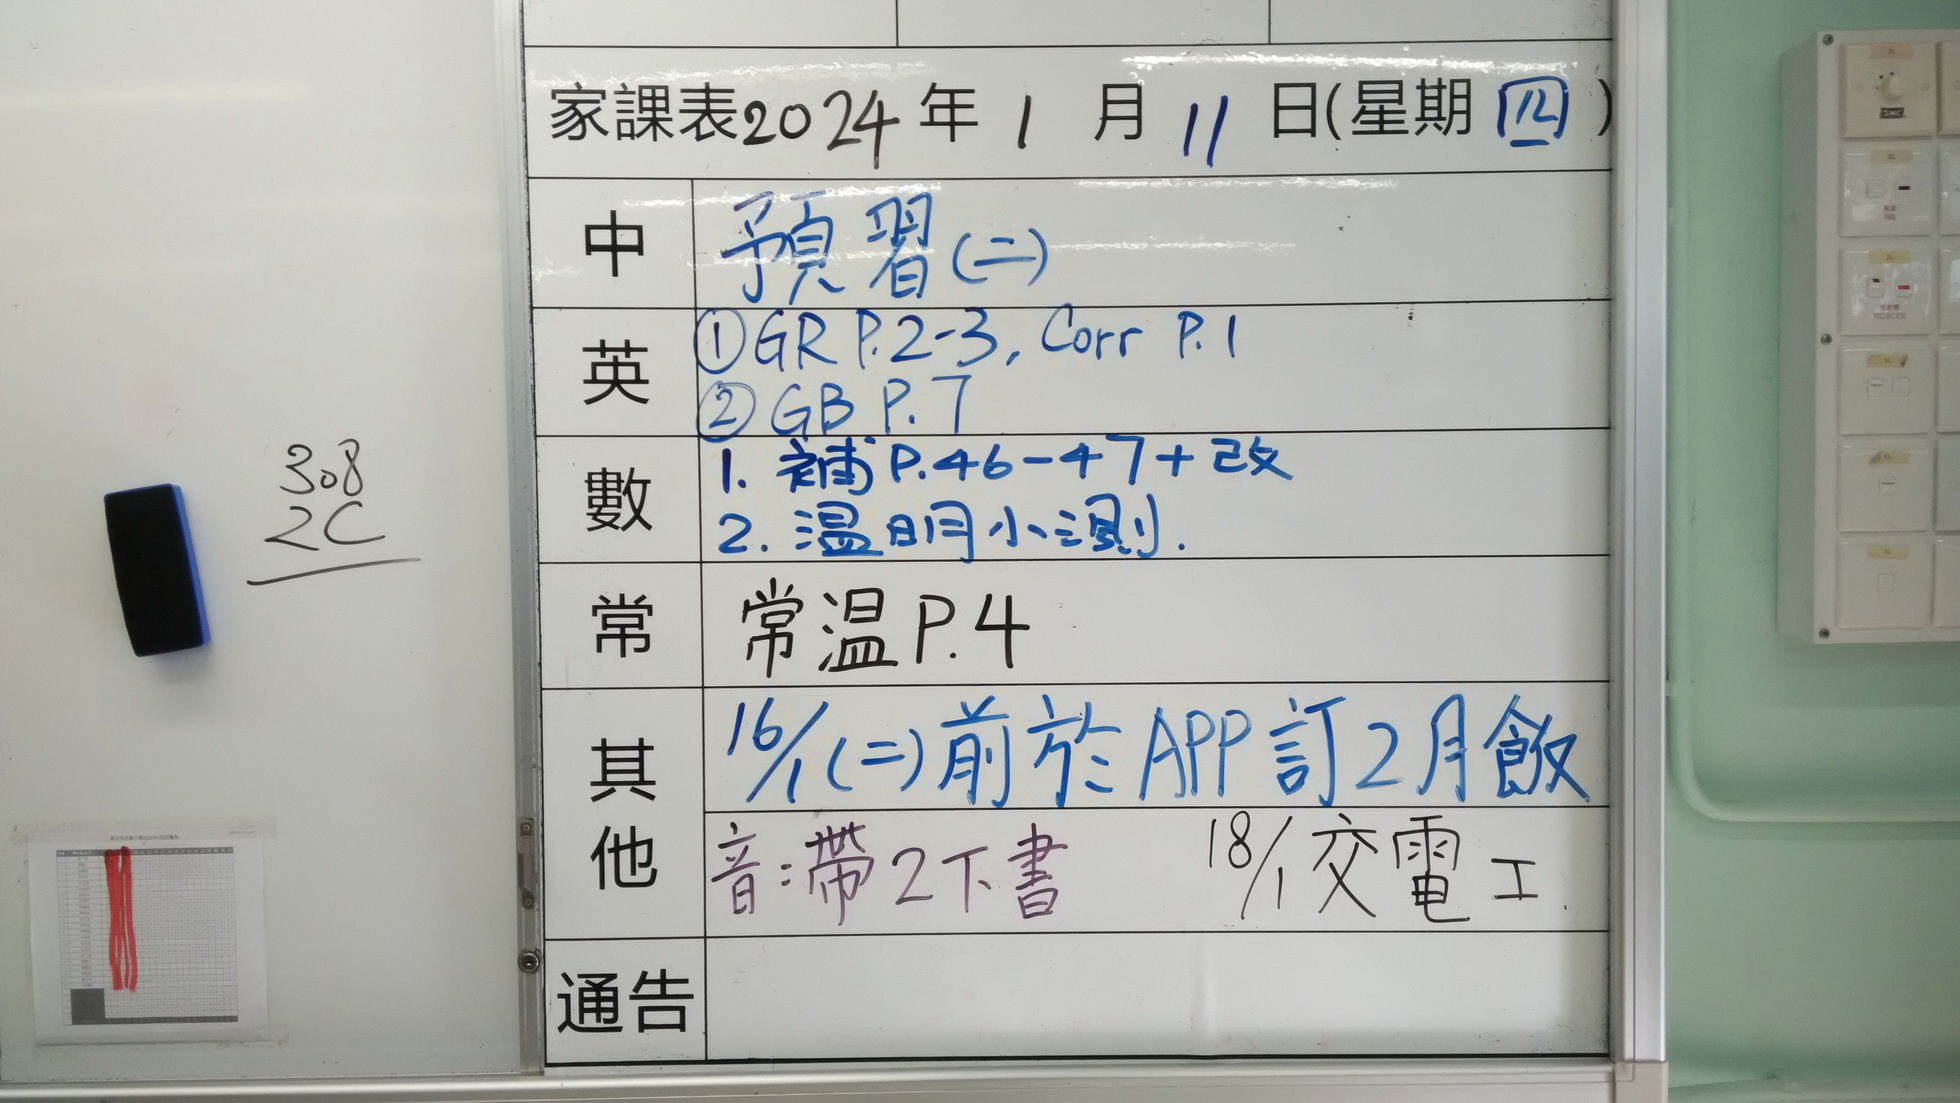 家課表2024年1月11日(星期四)
中 預習(二)
英 ①GR P.2-3, Corr P.1
②GB P.7
數 1. 補P.46-47+改
2. 溫明小測.
常 常溫P.4
其他 16/1(二)前於APP訂2月飯
音:帶2下書 18/1交電工.
通告
308
2C
PROJECTOR